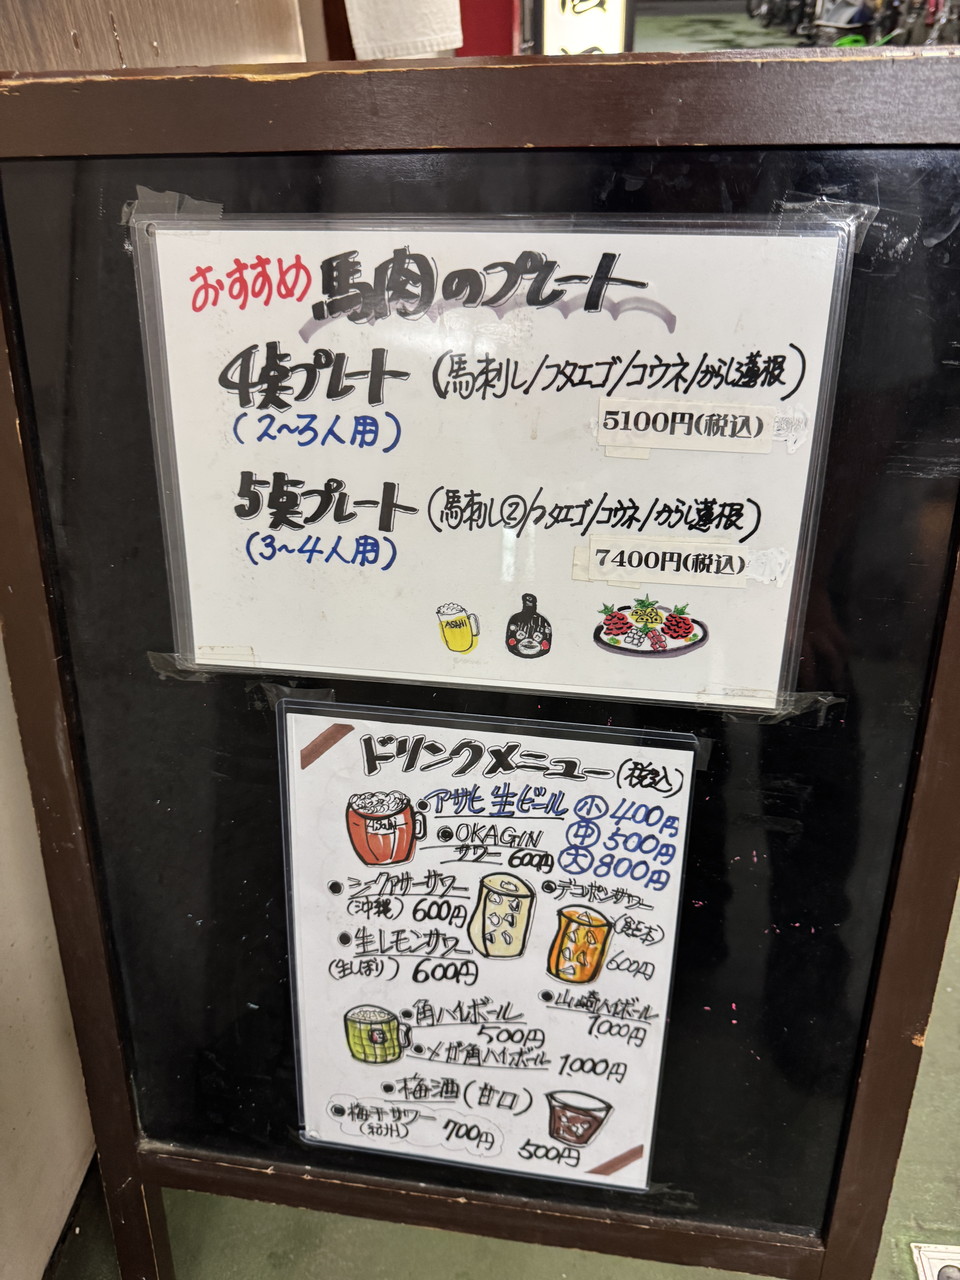 おすすめ 馬肉のプレート
4点プレート (馬刺し/フタエゴ/コウネ/からし蓮根)
(2~3人用) 5100円(税込)
5点プレート (馬刺し②/フタエゴ/コウネ/からし蓮根)
(3~4人用) 7400円(税込)
ASAHI
ドリンクメニュー (税込)
●アサヒ 生ビール 小 400円
中 500円
大 800円
●OKAGIN
サワー 600円
●シークァサーサワー
(沖縄) 600円
●デコポンサワー
(熊本)
600円
●生レモンサワー
(生しぼり) 600円
●角ハイボール
500円
●山崎ハイボール
1,000円
●メガ角ハイボール 1,000円
●梅酒(甘口)
500円
●梅干サワー
(紀州) 700円